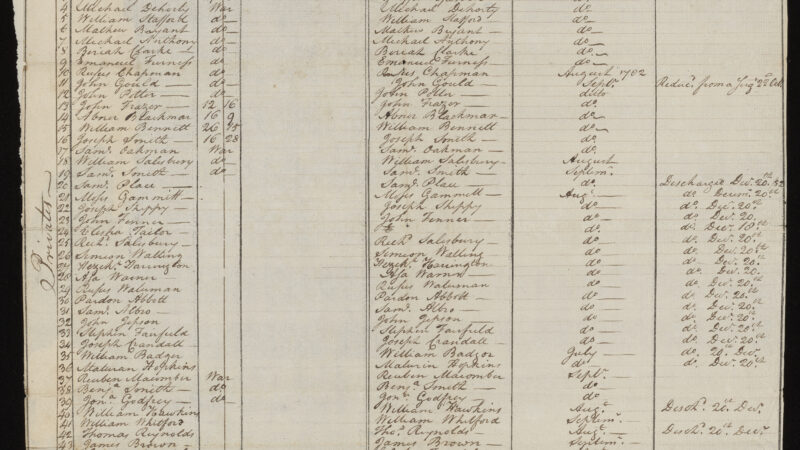 Privates
4 Michael Dehorty War Michael Dehorty do
5 William Stafford do William Stafford do
6 Mathew Bryant do Mathew Bryant do
7 Michael Anthony do Michael Anthony do
8 Boriah Clarke do Boriah Clarke do
9 Emanuel Furness do Emanuel Furness do
10 Rufus Chapman do Rufus Chapman August 1782
11 John Gould do John Gould Septr. Reducd. from a
12 John Potter do John Potter ditto
13 John Frazor 12 16 John Frazor do
14 Abner Blackmar 16 9 Abner Blackmar do
15 William Bennett 26 William Bennett do
16 Joseph Smith 16 28 Joseph Smith do
17 Saml. Oakman War Saml. Oakman do
18 William Salsbury do William Salsbury August
19 Saml. Smith do Saml. Smith Septem.
20 Saml. Place Saml. Place do Descharged Decr. 20th 82
21 Moses Gammitt Moses Gammett Augt. do Decemr. 20th
22 Joseph Shippy Joseph Shippy do do Decr. 20th
23 John Fenner John Fenner do do Decr. 20
24 Elisha Tailor do do Decr. 18th
25 Richd. Salesbury Richd. Salsbury do do Decr. 20th
26 Simeon Walling Simeon Walling do do Decr. 20th
27 Hezeh. Harrington Hezeh. Harington do do Decr. 20th
28 Asa Warner Asa Warner do do Decr. 20
29 Rufus Waterman Rufus Waterman do do Decr. 20th
30 Pardon Abbott Pardon Abbott do do Decr. 20th
31 Saml. Albro Saml. Albro do do Decr. 20th
32 John Jepson John Jepson do do Decr. 20th
33 Stephen Fairfield Stephen Fairfield do do Decr. 20th
34 Joseph Crandall Joseph Crandall do do Decr. 20th
35 William Badger William Badger July do 20th Decr.
36 Maturin Hopkins Maturin Hopkins do
37 Reuben Macomber War Reuben Macomber Septr.
38 Benja. Smith do Benja. Smith do
39 Jona. Godfrey do Jona. Godfrey do
40 William Hawkins William Hawkins Augt. Deschd. 20th Decr.
41 William Whitford William Whitford Septem.
42 Thomas Reynolds Thos. Reynolds Augt. Deschd. 20th Decr.
43 James Brown James Brown Septemr.